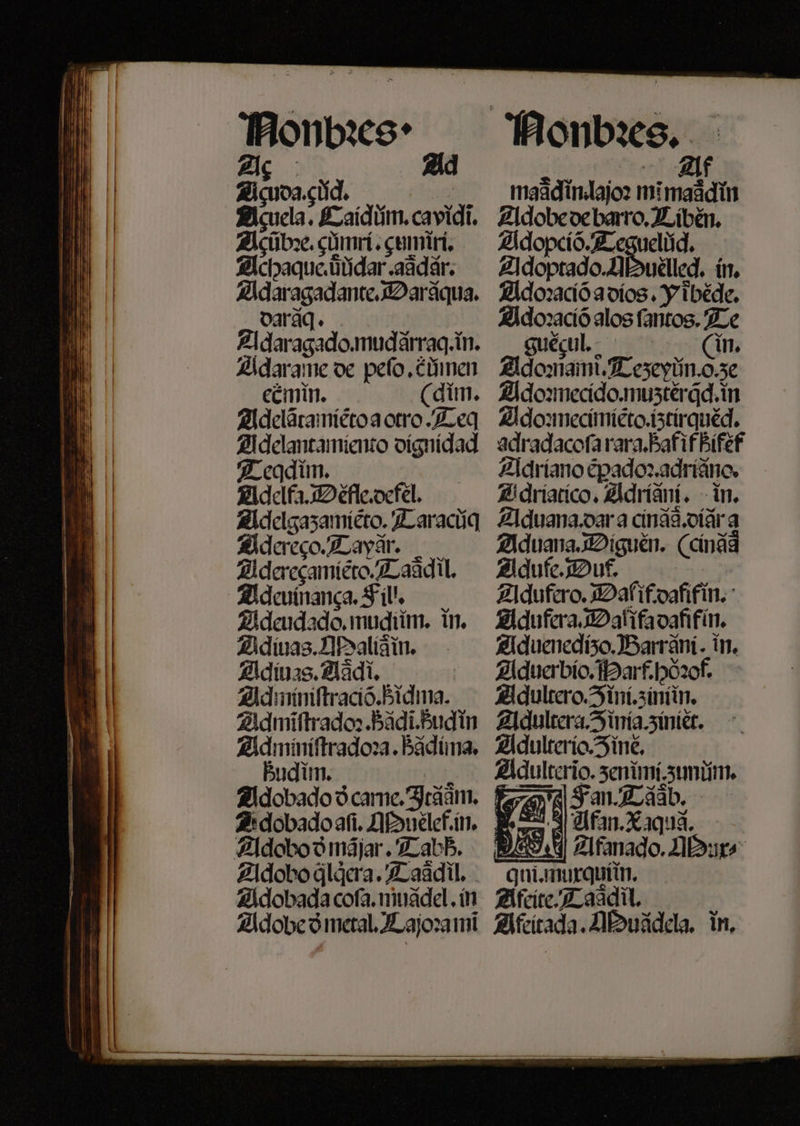 Nonbres.
Aç Ad
Açuda. çúd.
Açuela. Caidúm. cavidí.
Açúbre. çúmrí. çumiri.
Achaque. údar. aâdár.
Adaragadante. Daráqua.
daráq.
Adaragado. mudárraq. ín.
Adarame de peso. cúmen
cémin. (dim.
Adelãtamiẽto a otro. Teq
Adelantamiento dignidad
Teqdúm.
Adelfa. Défle. defél.
Adelgazamiẽto. Taracúq
Adereço. Tayár.
Adereçamiẽto. Taâdíl.
Adeuinança. Fil.
Adeudado. mudiúm. ín.
Adiuas.
Adiuas. Aâdi.
Administració. hidma.
Administrador. hâdi. hudin
Administradora. hâdima.
hudim.
Adobado d carne. Jtáâm.
Adobado asi. Muélef. ín.
Adobo d májar. Tabh.
Adobo qlqera. Taâdíl.
Adobada cosa. muâdel. ín
Adobe d metal. Lajor a mi
Nonbres.
Af
maâdin. lajor mi maâdín
Adobe de barro. Libén.
Adopció. Teguelúd.
Adoptado. Muélled. ín.
Adoració a dios. Yibéde.
Adoració a los santos. Te
guéçul. (ín.
Adornami. Tezeyún. o. ze
Adormecido. mustérqd. ín
Adormecimiẽto. istirquéd.
adrada cosa rara. hafif hiféf
Adriano épador. adriáno.
Adriatico. Adriáni. ín.
Aduana. dar a cináâ. diár a
Aduana. Diguén. (cináâ
Adufe. Duf.
Adufero. Dafif. dafifín.
Adufera. Dafifa dafifín.
Aduenedizo. Barráni. ín.
Aduerbio. Harf. hórof.
Adultero. Ziní. ziniín.
Adultera. Zinía. ziniét.
Adulterio. Ziné.
Adulterio. zenimí. zunúm.
Afan. Tââb.
Afan. Xaquá.
Afanado. Mux
qui. muxquiín.
Afeite. Taâdíl.
Afeitada. Muâdela. ín.